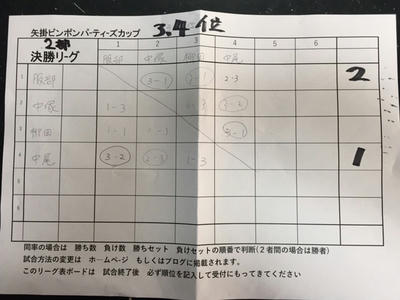 矢掛ピンポンパーティーズカップ 3.4位
2部
決勝リーグ 1 2 3 4 5 6
服部 中塚 柳田 中尾
1 服部 3-1 2-3 2
2 中塚 1-3
3 柳田 3-1
4 中尾 3-2 2-3 1-3 1
5
6
同率の場合は 勝ち数 負け数 勝ちセット 負けセットの順番で判断(2者間の場合は勝者)
試合方法の変更は ホームページ もしくはブログに掲載されます。
このリーグ表ボードは 試合終了後 必ず順位を記入して受付にもってきてください